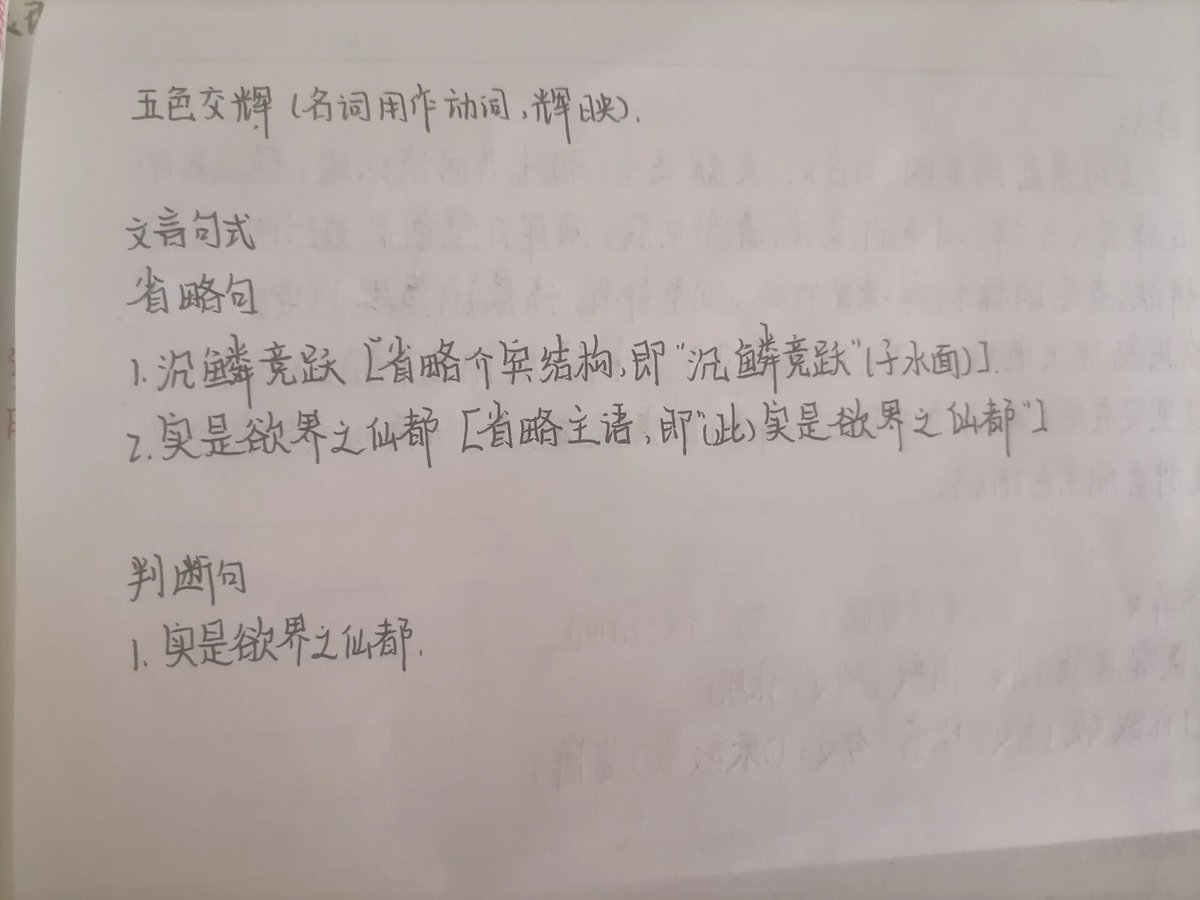 五色交辉（名词用作动词，辉映）.
文言句式
省略句
1. 沉鳞竞跃［省略介宾结构，即“沉鳞竞跃”(于水面)］.
2. 实是欲界之仙都［省略主语，即“(此)实是欲界之仙都”］
判断句
1. 实是欲界之仙都.